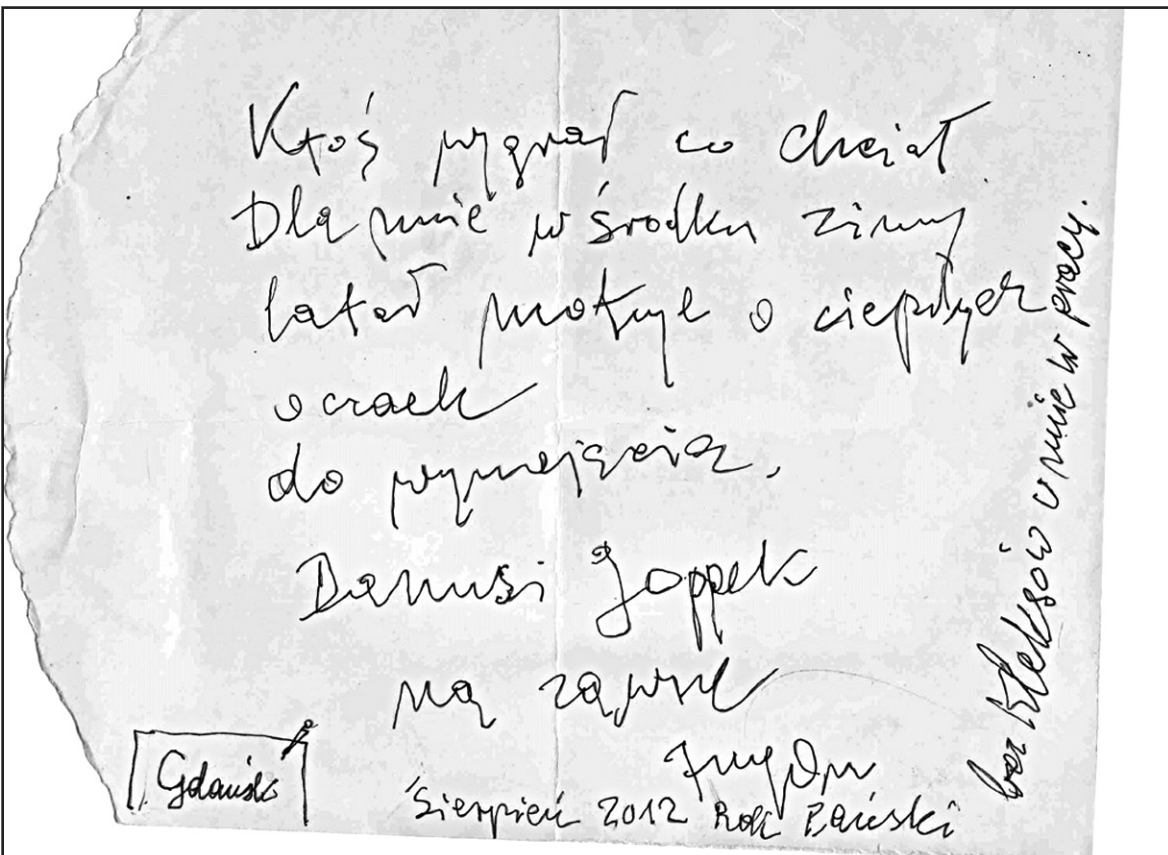 Ktoś wygrał co chciał
Dla mnie w środku zimy
latał motyl o ciepłych
oczach
do wynajęcia.
Danusi Joppek
na zawsze
Sierpień 2012 Rok Pański
Gdański
bar Kleksów u mnie w pracy.